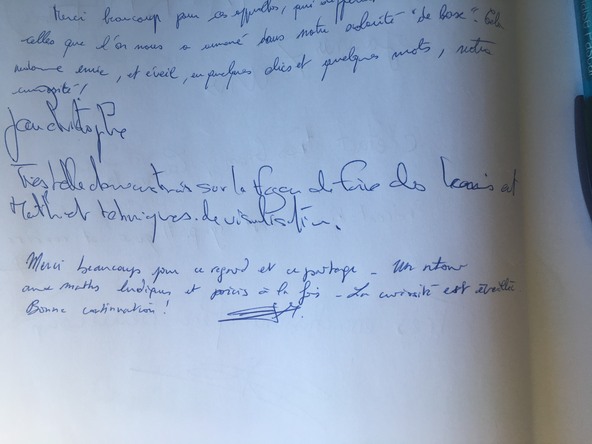 Merci beaucoup pour ces
celles que l'on nous a amené dans notre scolarité "de base".
et éveil, en quelques clics et quelques mots, notre
curiosité!
Jean Christophe
Très belle démonstration sur la façon de faire des
Maths et techniques de visualisation.
Merci beaucoup pour ce regard et ce partage - Un retour
aux maths ludiques et précis à la fois - La curiosité est éveillée
Bonne continuation!